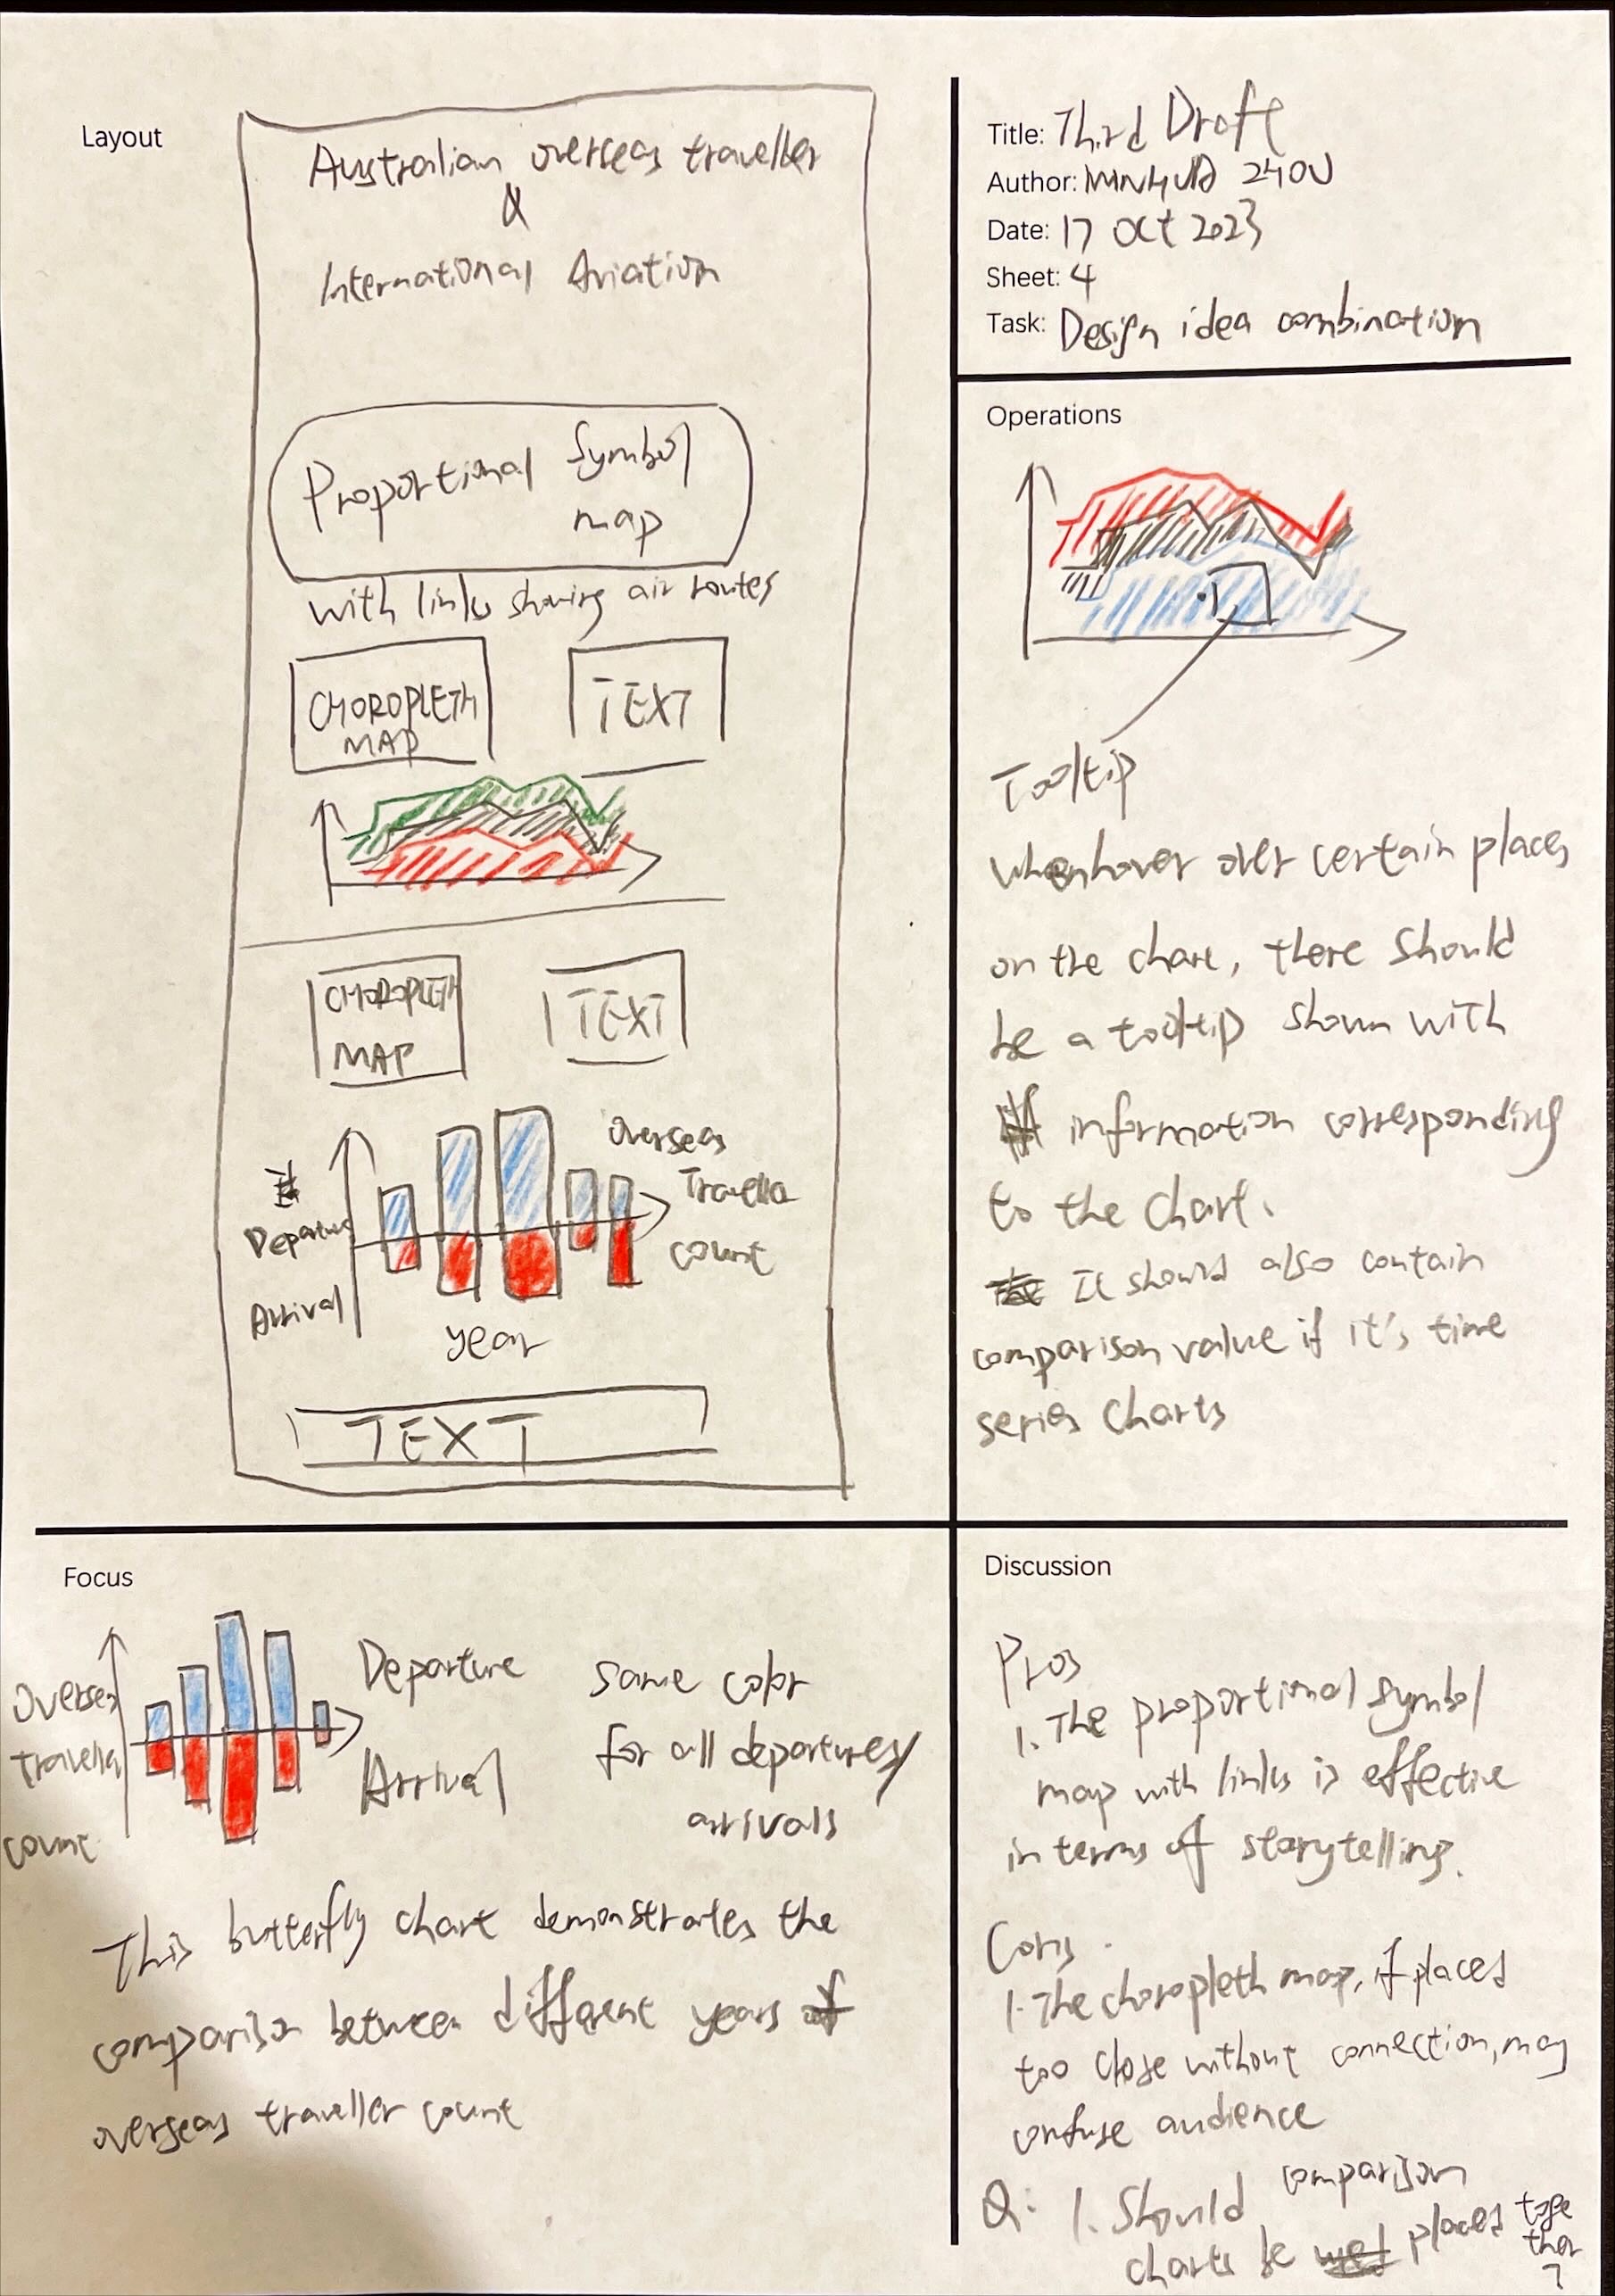 Layout
Australian overseas traveller
&
International Aviation
Proportional Symbol
map
with links showing air routes
CHOROPLETH
MAP
TEXT
CHOROPLETH
MAP
TEXT
overseas
Traveller
count
Departure
Arrival
year
TEXT
Title: Third Draft
Author: MINHUA ZHOU
Date: 17 Oct 2023
Sheet: 4
Task: Design idea combination
Operations
Tooltip
When hover over certain places
on the chart, there should
be a tooltip shown with
information corresponding
to the chart.
It should also contain
comparison value if it's time
series charts
Focus
Overseas
traveller
count
Departure
Arrival
same color
for all departures/
arrivals
This butterfly chart demonstrates the
comparison between different years of
overseas traveller count
Discussion
Pros
1. The proportional symbol
map with links is effective
in terms of storytelling.
Cons.
1. The choropleth map, if places
too close without connection, may
confuse audience
Q: 1. Should comparison
charts be places together
?